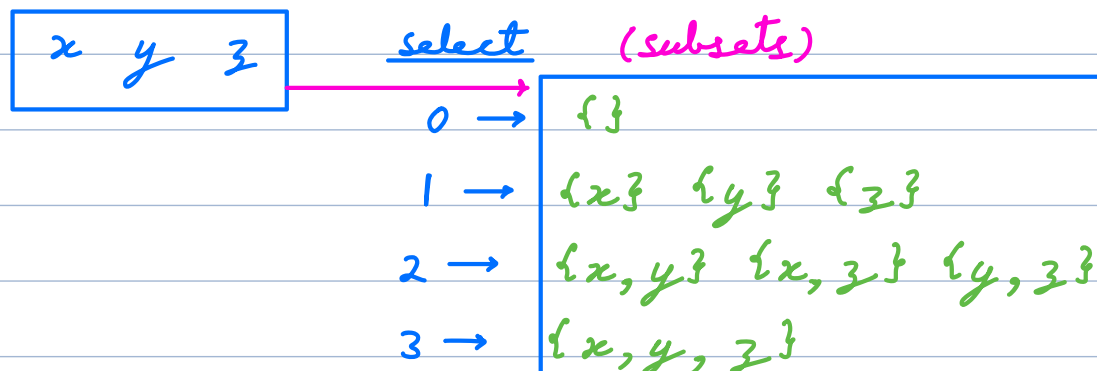 x y z select (subsets)
0 → {}
1 → {x} {y} {z}
2 → {x,y} {x,z} {y,z}
3 → {x,y,z}